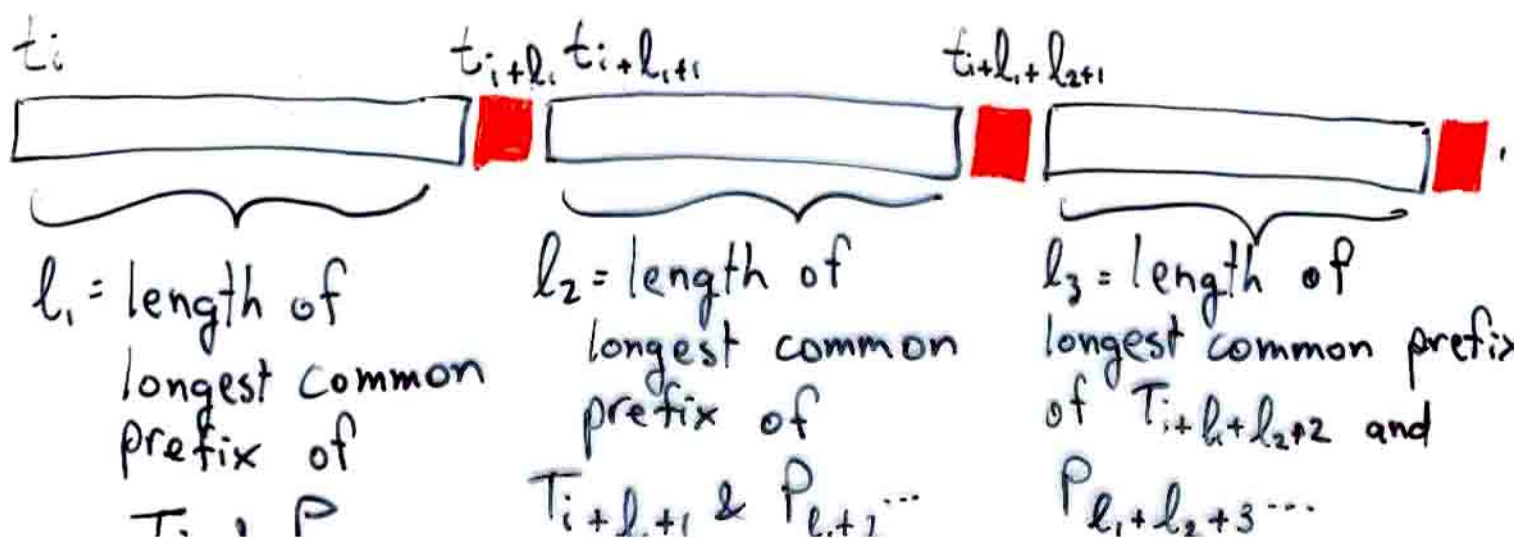 tᵢ tᵢ₊ₗ₁ tᵢ₊ₗ₁₊₁ tᵢ₊ₗ₁₊ₗ₂₊₁
l₁ = length of
longest common
prefix of
Tᵢ & P
l₂ = length of
longest common
prefix of
Tᵢ₊ₗ₁₊₁ & Pₗ₁₊₂ ...
l₃ = length of
longest common prefix
of Tᵢ₊ₗ₁₊ₗ₂₊₂ and
Pₗ₁₊ₗ₂₊₃ ...